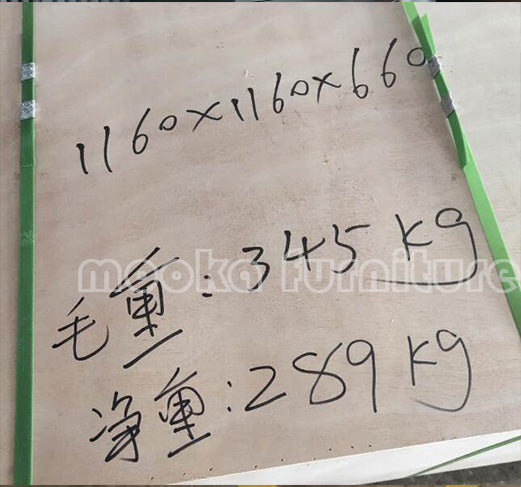 1160×1160×660
毛重:345 kg
mooka furniture
净重:289 kg